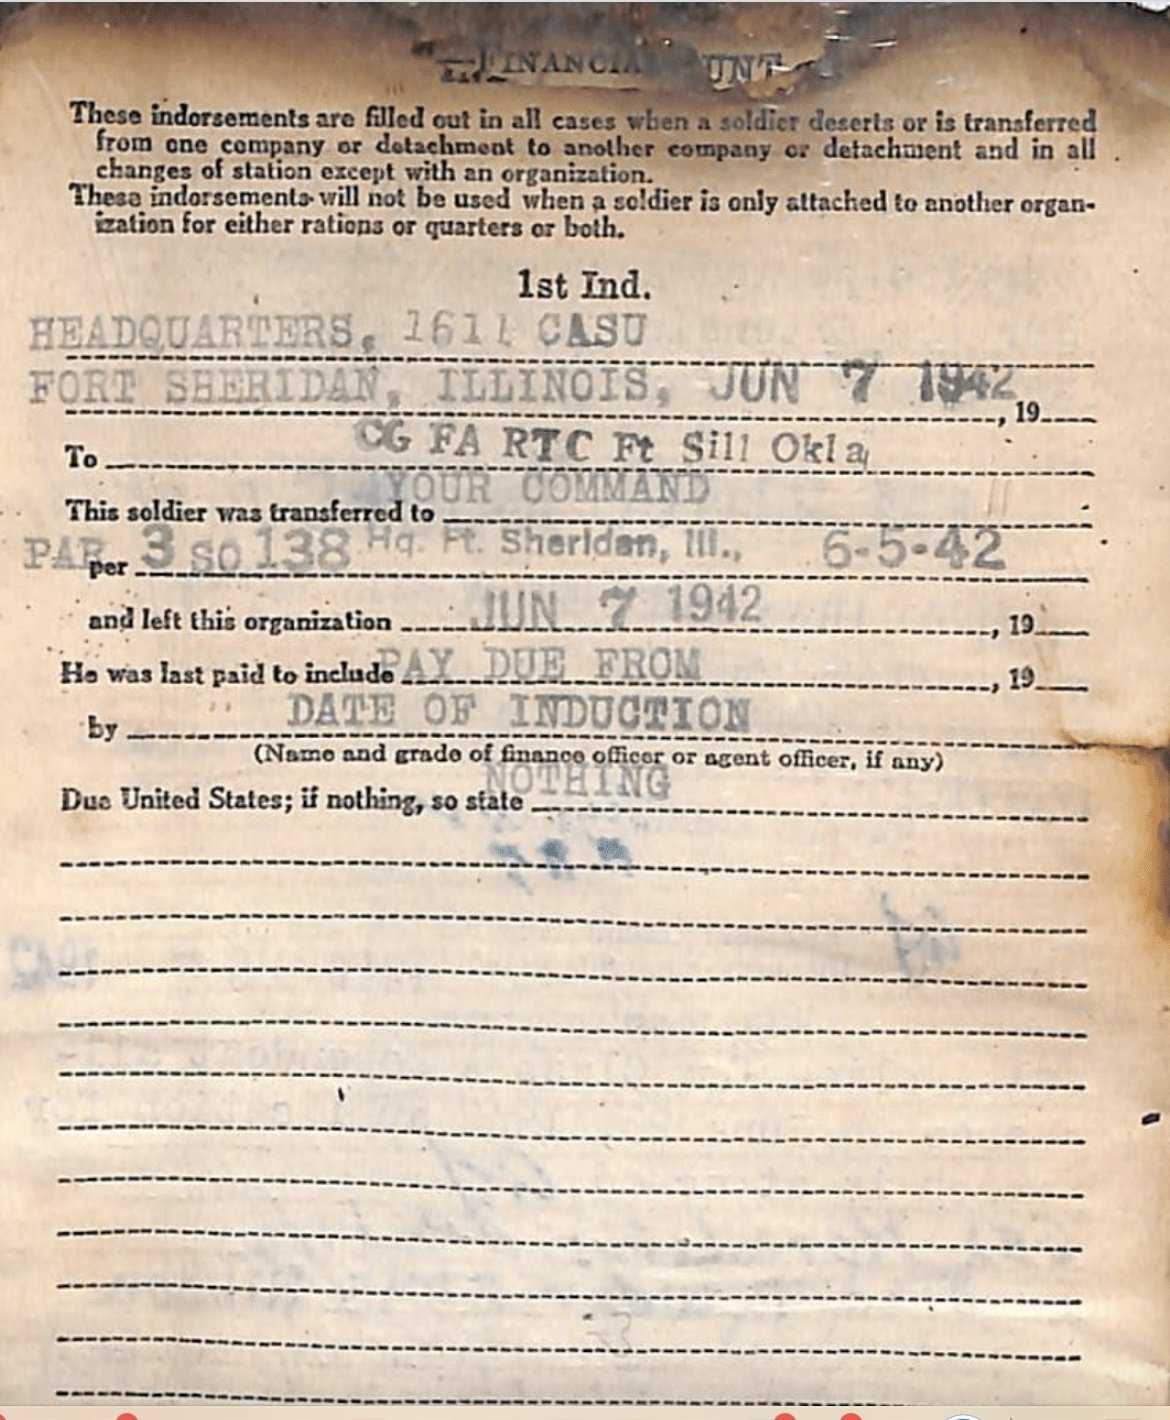 FINANCIA UNT
These indorsements are filled out in all cases when a soldier deserts or is transferred
from one company or detachment to another company or detachment and in all
changes of station except with an organization.
These indorsements will not be used when a soldier is only attached to another organ-
ization for either rations or quarters or both.
1st Ind.
HEADQUARTERS, 1611 CASU
FORT SHERIDAN, ILLINOIS, JUN 7 1942, 19
To CG FA RTC Ft Sill Okla
This soldier was transferred to YOUR COMMAND
PAR per 3 SO 138 Hq. Ft. Sheridan, Ill., 6-5-42
and left this organization JUN 7 1942, 19
He was last paid to include PAY DUE FROM, 19
by DATE OF INDUCTION
(Name and grade of finance officer or agent officer, if any)
Due United States; if nothing, so state NOTHING